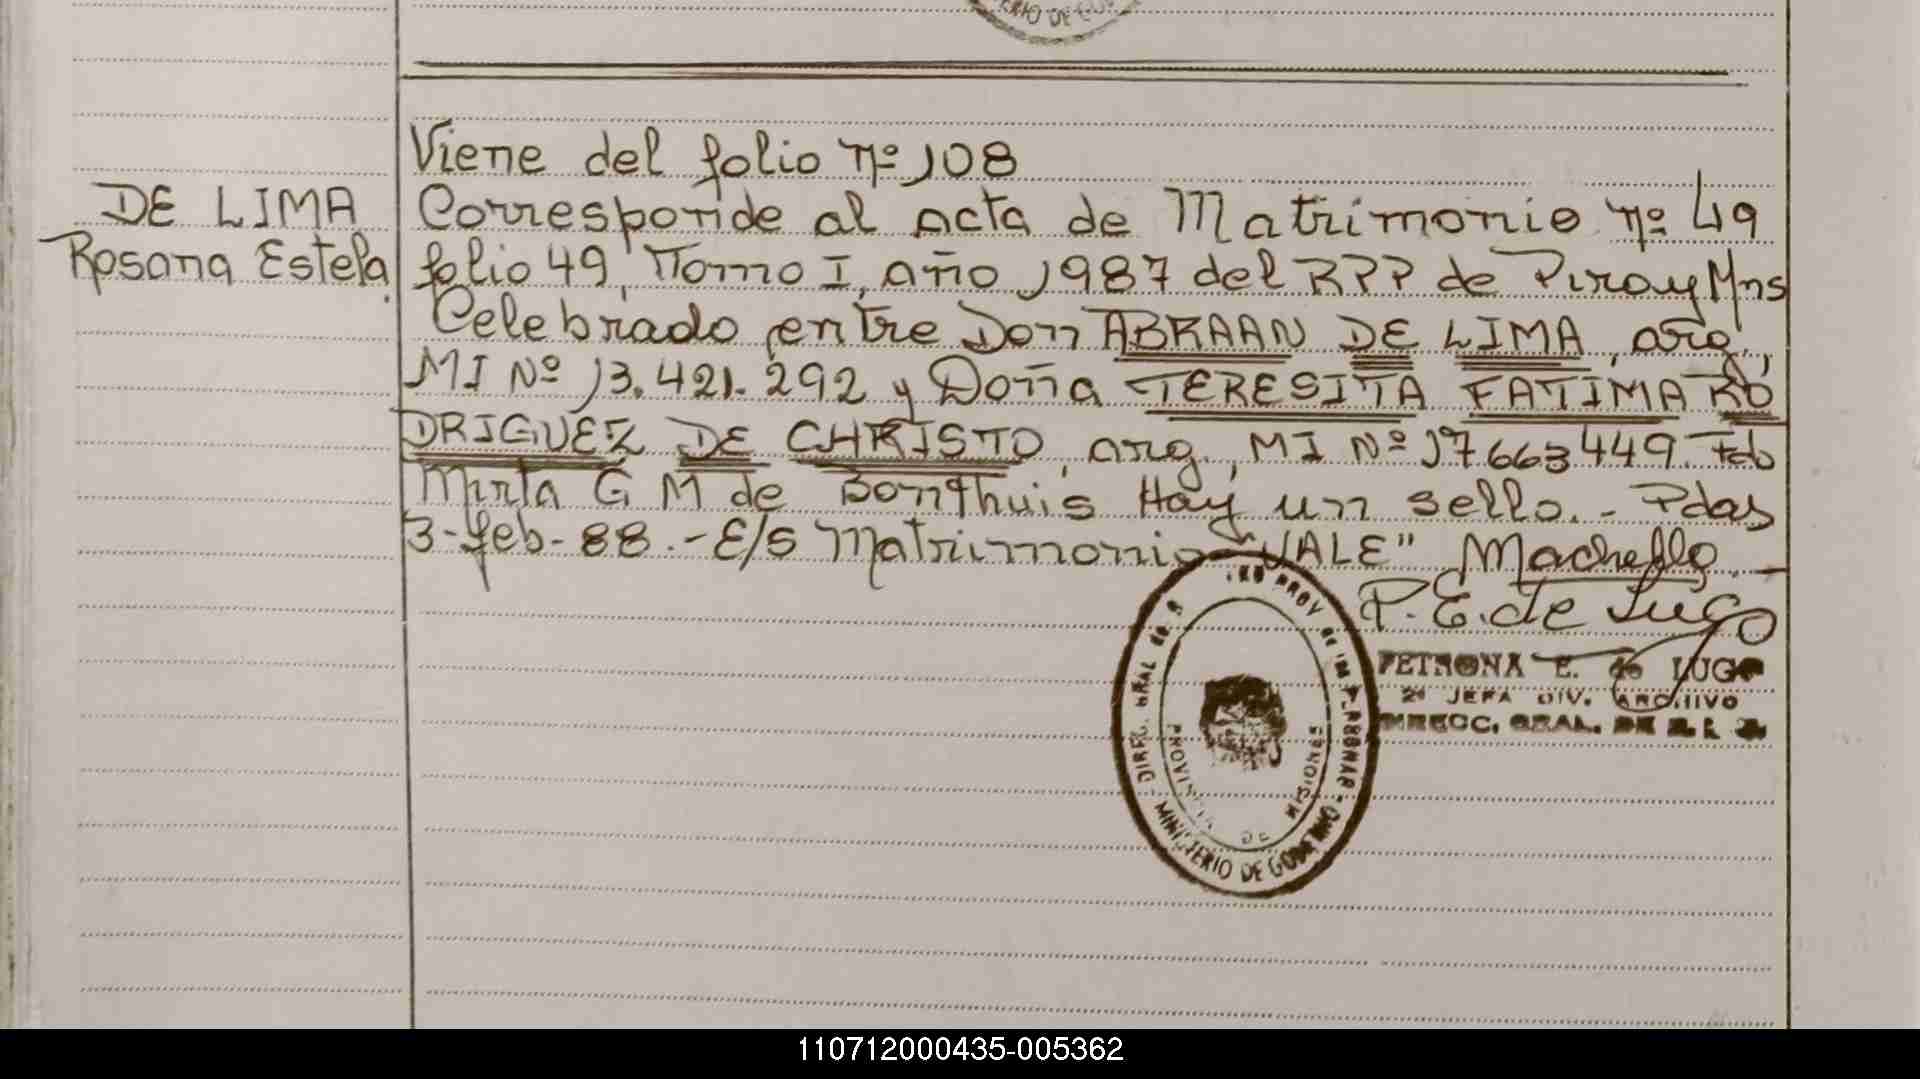 DE LIMA
Rosana Estela
Viene del folio nº 108
Corresponde al acta de Matrimonio nº 49
folio 49, Tomo I, año 1987 del RPP de Piray Mns
Celebrado entre Don ABRAAN DE LIMA, arg.,
MI Nº 13.421.292 y Doña TERESITA FATIMA RO
DRIGUEZ DE CHRISTO, arg., MI Nº 17663449. Fdo
Mirta G M de Bonthuis Hay un sello.- Pdas
3-feb-88.- E/s Matrimonio "VALE"
P. E. de Lugo
PETRONA E. de LUGO
2ª JEFA DIV. ARCHIVO
DIRECC. GRAL. DE
DIREC. GRAL de
PROV de
MINISTERIO DE GOBIERNO
PROVINCIA DE MISIONES
110712000435-005362